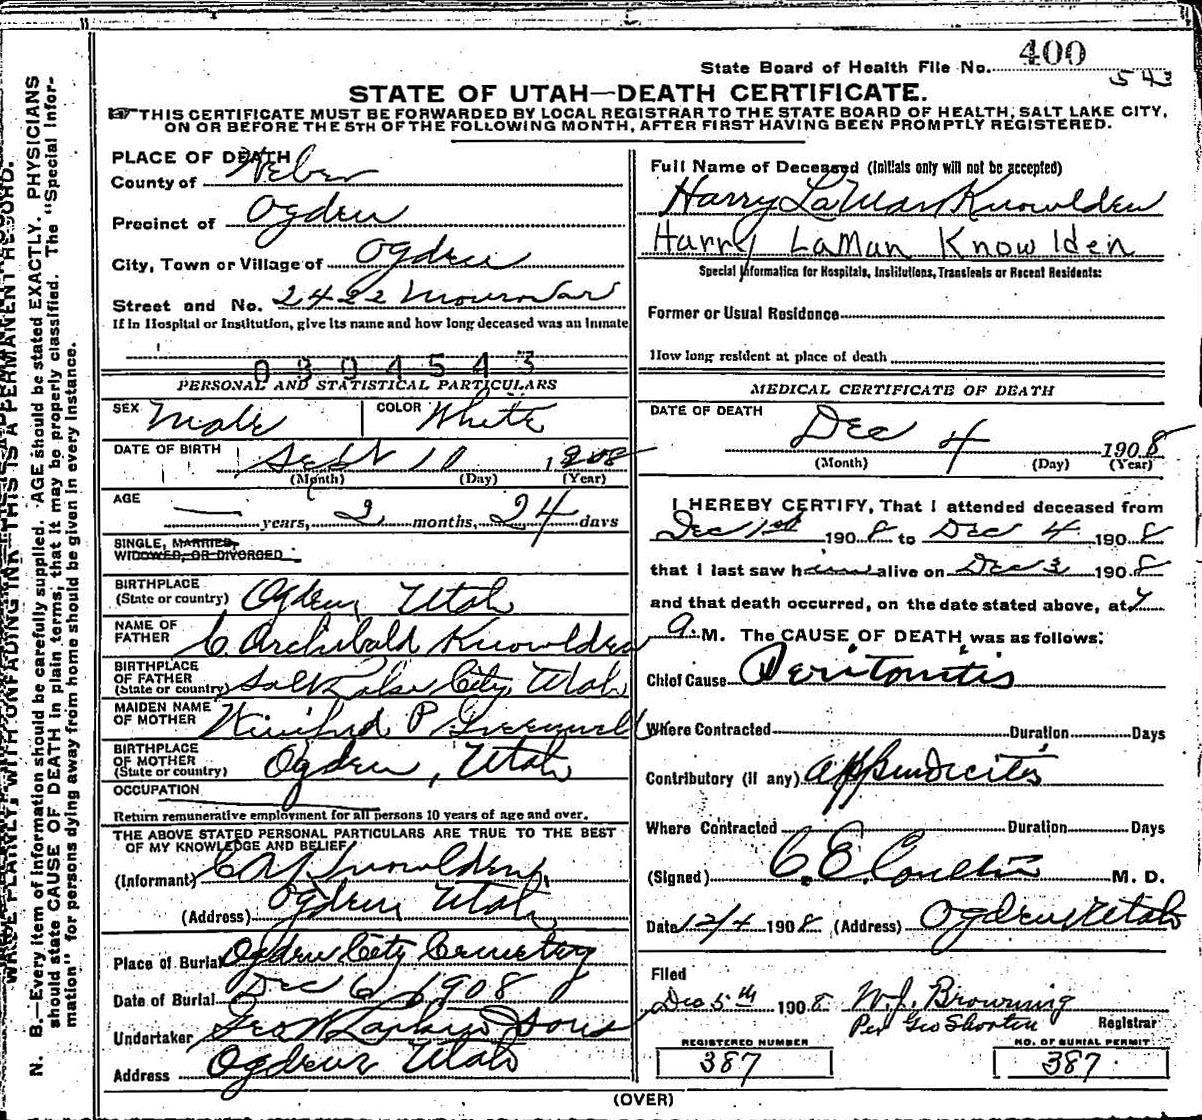 State Board of Health File No. 400
543
STATE OF UTAH—DEATH CERTIFICATE.
THIS CERTIFICATE MUST BE FORWARDED BY LOCAL REGISTRAR TO THE STATE BOARD OF HEALTH, SALT LAKE CITY,
ON OR BEFORE THE 5TH OF THE FOLLOWING MONTH, AFTER FIRST HAVING BEEN PROMPTLY REGISTERED.
PLACE OF DEATH
County of Weber
Precinct of Ogden
City, Town or Village of Ogden
Street and No. 2422
If in Hospital or Institution, give its name and how long deceased was an inmate
0 8 0 4 5 4 3
PERSONAL AND STATISTICAL PARTICULARS
SEX Male COLOR White
DATE OF BIRTH Sept 10 1908
(Month) (Day) (Year)
AGE — years, 2 months, 24 days
SINGLE, MARRIED,
WIDOWED, OR DIVORCED
BIRTHPLACE
(State or country) Ogden Utah
NAME OF
FATHER C. Archibald Knowlden
BIRTHPLACE
OF FATHER
(State or country) Salt Lake City, Utah
MAIDEN NAME
OF MOTHER Winifred P Greenwell
BIRTHPLACE
OF MOTHER
(State or country) Ogden, Utah
OCCUPATION
Return remunerative employment for all persons 10 years of age and over.
THE ABOVE STATED PERSONAL PARTICULARS ARE TRUE TO THE BEST
OF MY KNOWLEDGE AND BELIEF
(Informant) C A Knowlden,
(Address) Ogden Utah
Place of Burial Ogden City Cemetery
Date of Burial Dec 6, 1908
Undertaker Geo W Larkin & Sons
Address Ogden Utah
Full Name of Deceased (Initials only will not be accepted)
Harry LaMan Knowlden
Harry LaMan Knowlden
Special Information for Hospitals, Institutions, Transients or Recent Residents:
Former or Usual Residence
How long resident at place of death
MEDICAL CERTIFICATE OF DEATH
DATE OF DEATH
Dec 4 1908
(Month) (Day) (Year)
I HEREBY CERTIFY, That I attended deceased from
Dec 1st 1908 to Dec 4 1908
that I last saw him alive on Dec 3 1908
and that death occurred, on the date stated above, at 7
a. M. The CAUSE OF DEATH was as follows:
Chief Cause Peritonitis
Where Contracted Duration Days
Contributory (if any) appendicitis
Where Contracted Duration Days
(Signed) C. E. Coulter M. D.
Date 12/4 1908 (Address) Ogden Utah
Filed
Dec 5th 1908 W. J. Browning
Per Geo Shorten Registrar
REGISTERED NUMBER
387
NO. OF BURIAL PERMIT
387
(OVER)
WRITE PLAINLY, WITH UNFADING INK—THIS IS A PERMANENT RECORD.
N. B.—Every item of information should be carefully supplied. AGE should be stated EXACTLY. PHYSICIANS
should state CAUSE OF DEATH in plain terms, that it may be properly classified. The "Special Infor-
mation" for persons dying away from home should be given in every instance.